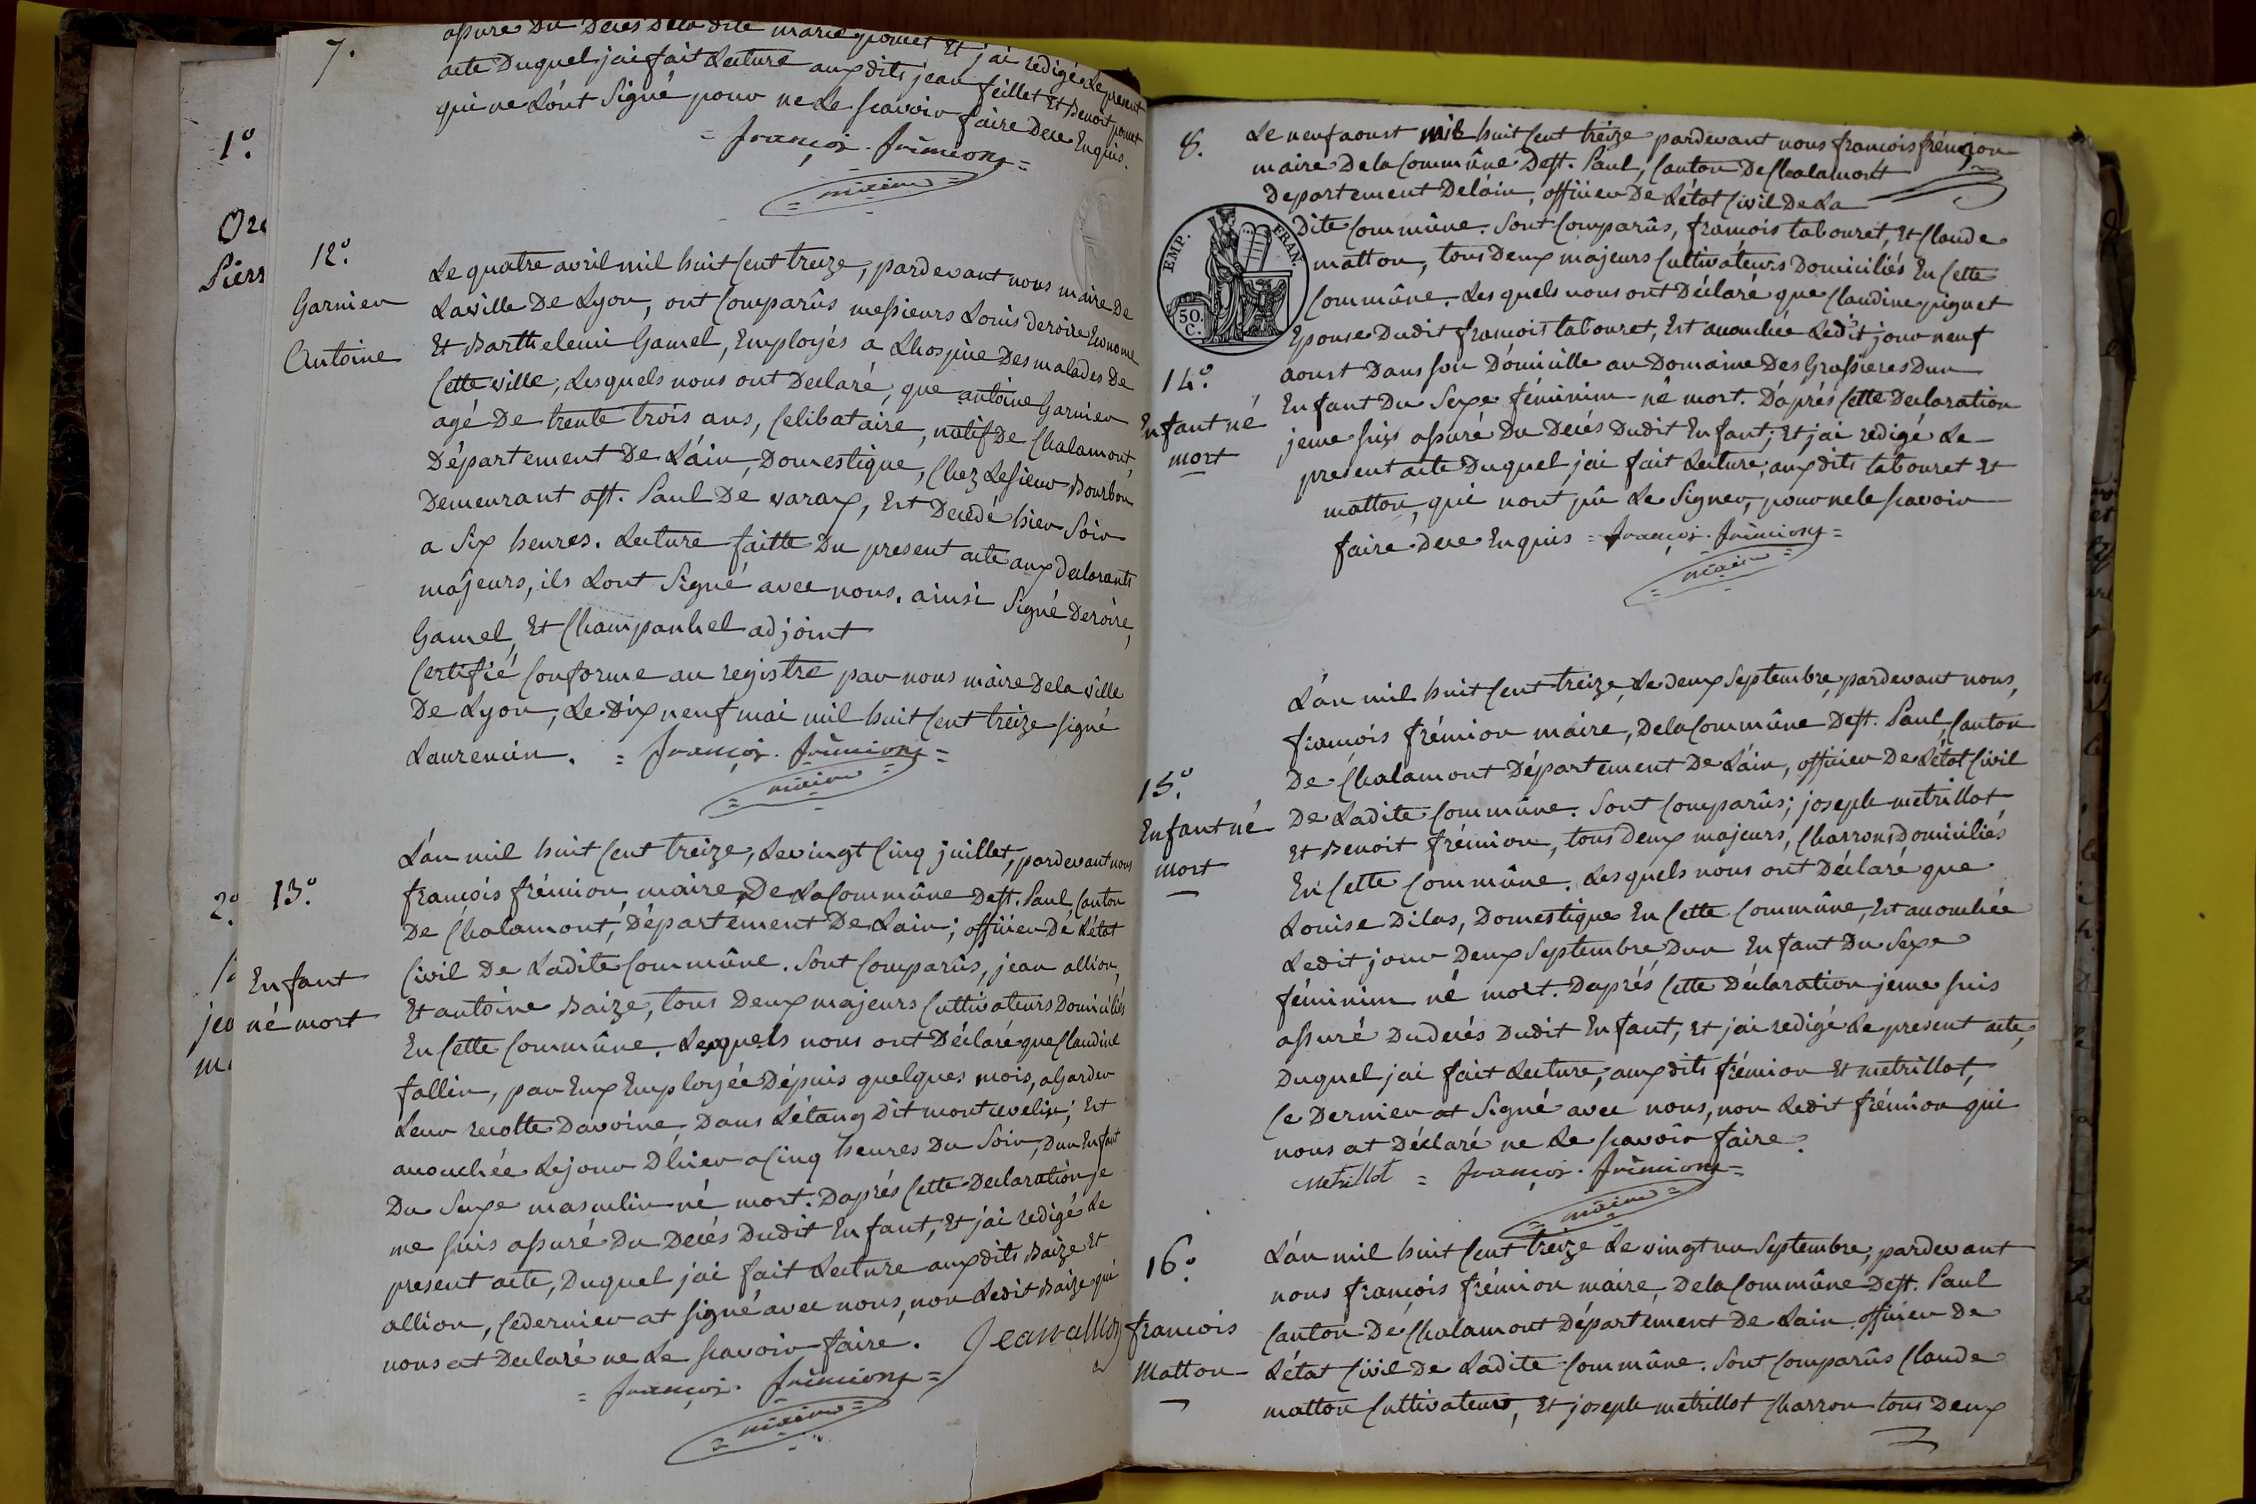 7.
assuré Du Decés Dela dite marie pomet Et j'ai redigé Le present
acte Duquel jai fait Lecture aux dits jean feillet Et Benoit pomet
qui ne Lont Signé pour ne Le scavoir faire Dece Enquis.
= françois. frémion =
maire
1º.
Ore
Pierr
12º.
Garnier
Antoine
Le quatre avril mil huit Cent treize, pardevant nous maire De
La ville De Lyon, ont Comparûs messieurs Louis deroire Econome
Et Barthelemi Gamel, Employés a Lhospice Des malades De
Cette ville, Lesquels nous ont Declaré, que antoine Garnier
agé De trente trois ans, Celibataire, natif De Chalamont,
Département De Láin, Domestique, Chez Le sieur Bourbon
Demeurant a st. Paul De varax, Est Decedé hier Soir
a Six heures. Lecture faitte Du present acte aux declarants
majeurs, ils Lont Signé avec nous. ainsi Signé Deroire,
Gamel, Et Champanhel adjoint
Certifié Conforme au registre par nous maire Dela ville
De Lyon, Le Dix neuf mai mil huit Cent treize signé
Laurencin. = françois. frémion =
maire
2º
jea
13º
Enfant
né mort
Lán mil huit Cent treize, Le vingt Cinq juillet, pardevant nous
françois frémion, maire, De La Commûne De st. Paul, Canton
De Chalamont, Département De Lain; officier De Létat
Civil De Ladite Commûne. Sont Comparûs, jean allion,
Et antoine Baize, tous Deux majeurs Cultivateurs Domiciliés
En Cette Commûne. Lesquels nous ont Déclaré que Claudine
follin, par Eux Employée Dépuis quelques mois, a Garder
Leur recolte Davoine, Dans Létang Dit montrevelin; Est
accouchée Le jour Dhier a Cinq heures Du Soir, Dun Enfant
Du Sexe masculin né mort. Daprés Cette Declaration je
me Suis assuré Du Decés Dudit Enfant, Et j'ai redigé Le
present acte, Duquel jai fait Lecture aux dits Baize Et
allion, Ce dernier at signé avec nous, non Ledit Baize qui
nous at Declaré ne Le scavoir faire. Jean allion
= françois. frémion =
maire
8.
Le neuf aoust mil huit Cent treize pardevant nous françois frémion
maire De la Commûne De st. Paul, Canton De Chalamont
departement De láin, officier De Létat Civil De La
dite Commûne. Sont Comparûs, françois tabouret, Et Claude
matton, tous Deux majeurs Cultivateurs Domiciliés En Cette
Commûne. Les quels nous ont Déclaré que Claudine piguet
Epouse Dudit françois tabouret, Est accouchée Ledit jour neuf
aoust Dans son Domicille au Domaine Des Grassieres Dun
Enfant Du Sexe féminim né mort. Daprés Cette Declaration
je me suis assuré Du Decés Dudit Enfant; Et j'ai redigé Le
present acte Duquel j'ai fait Lecture, aux dits tabouret Et
matton, qui nont pû Le Signer, pour ne le scavoir
faire Dece Enquis = françois. frémion =
maire
EMP. FRAN.
50. C.
14º.
Enfant né
mort
Lán mil huit Cent treize, Le deux Septembre, pardevant nous,
françois frémion maire, De la Commûne De st. Paul, Canton
De Chalamont Département De Láin, officier De Létat Civil
De Ladite Commûne. Sont Comparûs; joseph metrillot
Et Benoit frémion, tous Deux majeurs, Charrons Domiciliés
En Cette Commûne. Lesquels nous ont Déclaré que
Louise Dilas, Domestique En Cette Commûne, Est accouchée
Ledit jour Deux Septembre Dun Enfant Du Sexe
féminim né mort. Daprés Cette Déclaration je me suis
assuré Du decés Dudit Enfant, Et j'ai redigé Le present acte,
Duquel j'ai fait Lecture, aux dits frémion Et metrillot,
Ce Dernier at Signé avec nous, non Ledit frémion qui
nous at Déclaré ne Le scavoir faire.
Metrillot = françois. frémion =
maire
15º.
Enfant né
mort
16º.
françois
Matton
Lán mil huit Cent treize Le vingt un Septembre, pardevant
nous françois frémion maire De la Commûne De st. Paul
Canton De Chalamont Département De Lain officier De
Létat Civil De Ladite Commûne. Sont Comparûs Claude
matton Cultivateur, Et joseph metrillot Charron tous Deux